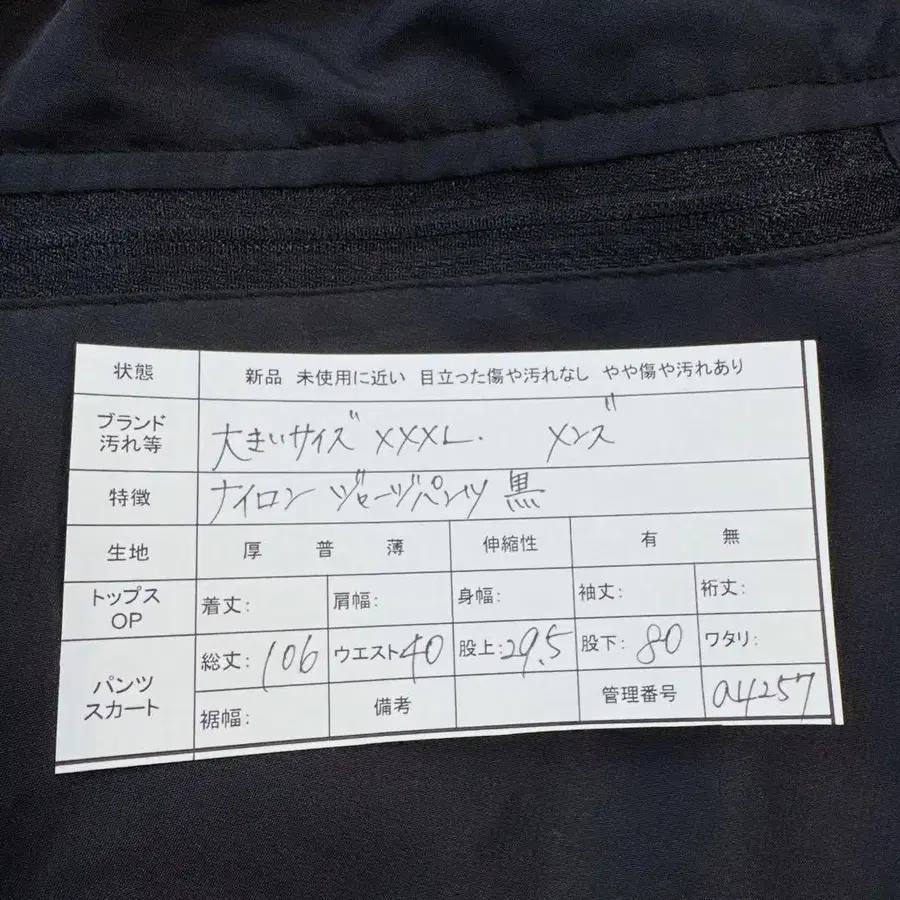 状態 新品 未使用に近い 目立った傷や汚れなし やや傷や汚れあり
ブランド
汚れ等 大きいサイズ XXXL. メンズ
特徴 ナイロン ジャージパンツ 黒
生地 厚 普 薄 伸縮性 有 無
トップス
OP 着丈: 肩幅: 身幅: 袖丈: 裄丈:
パンツ
スカート 総丈: 106 ウエスト 40 股上: 29.5 股下: 80 ワタリ:
裾幅: 備考 管理番号 a4257